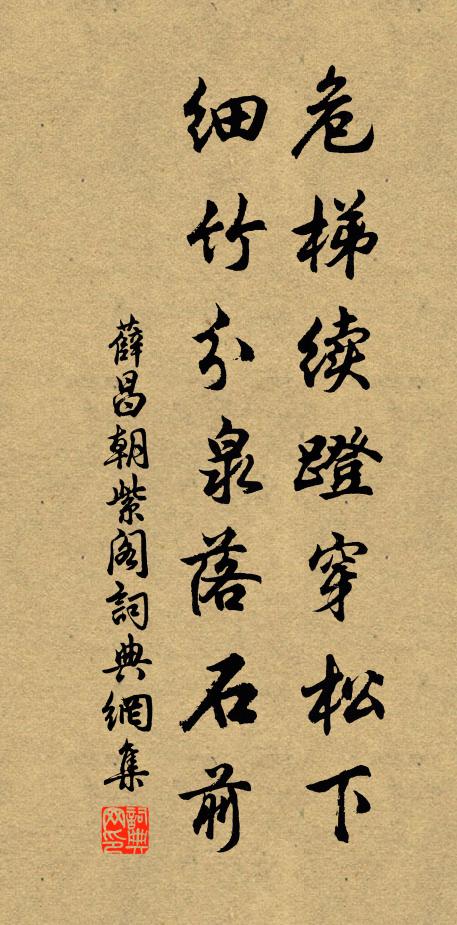 危梯续蹬穿松下
细竹分泉落石前
薛昌朝紫阁詞典網集
詞典网印